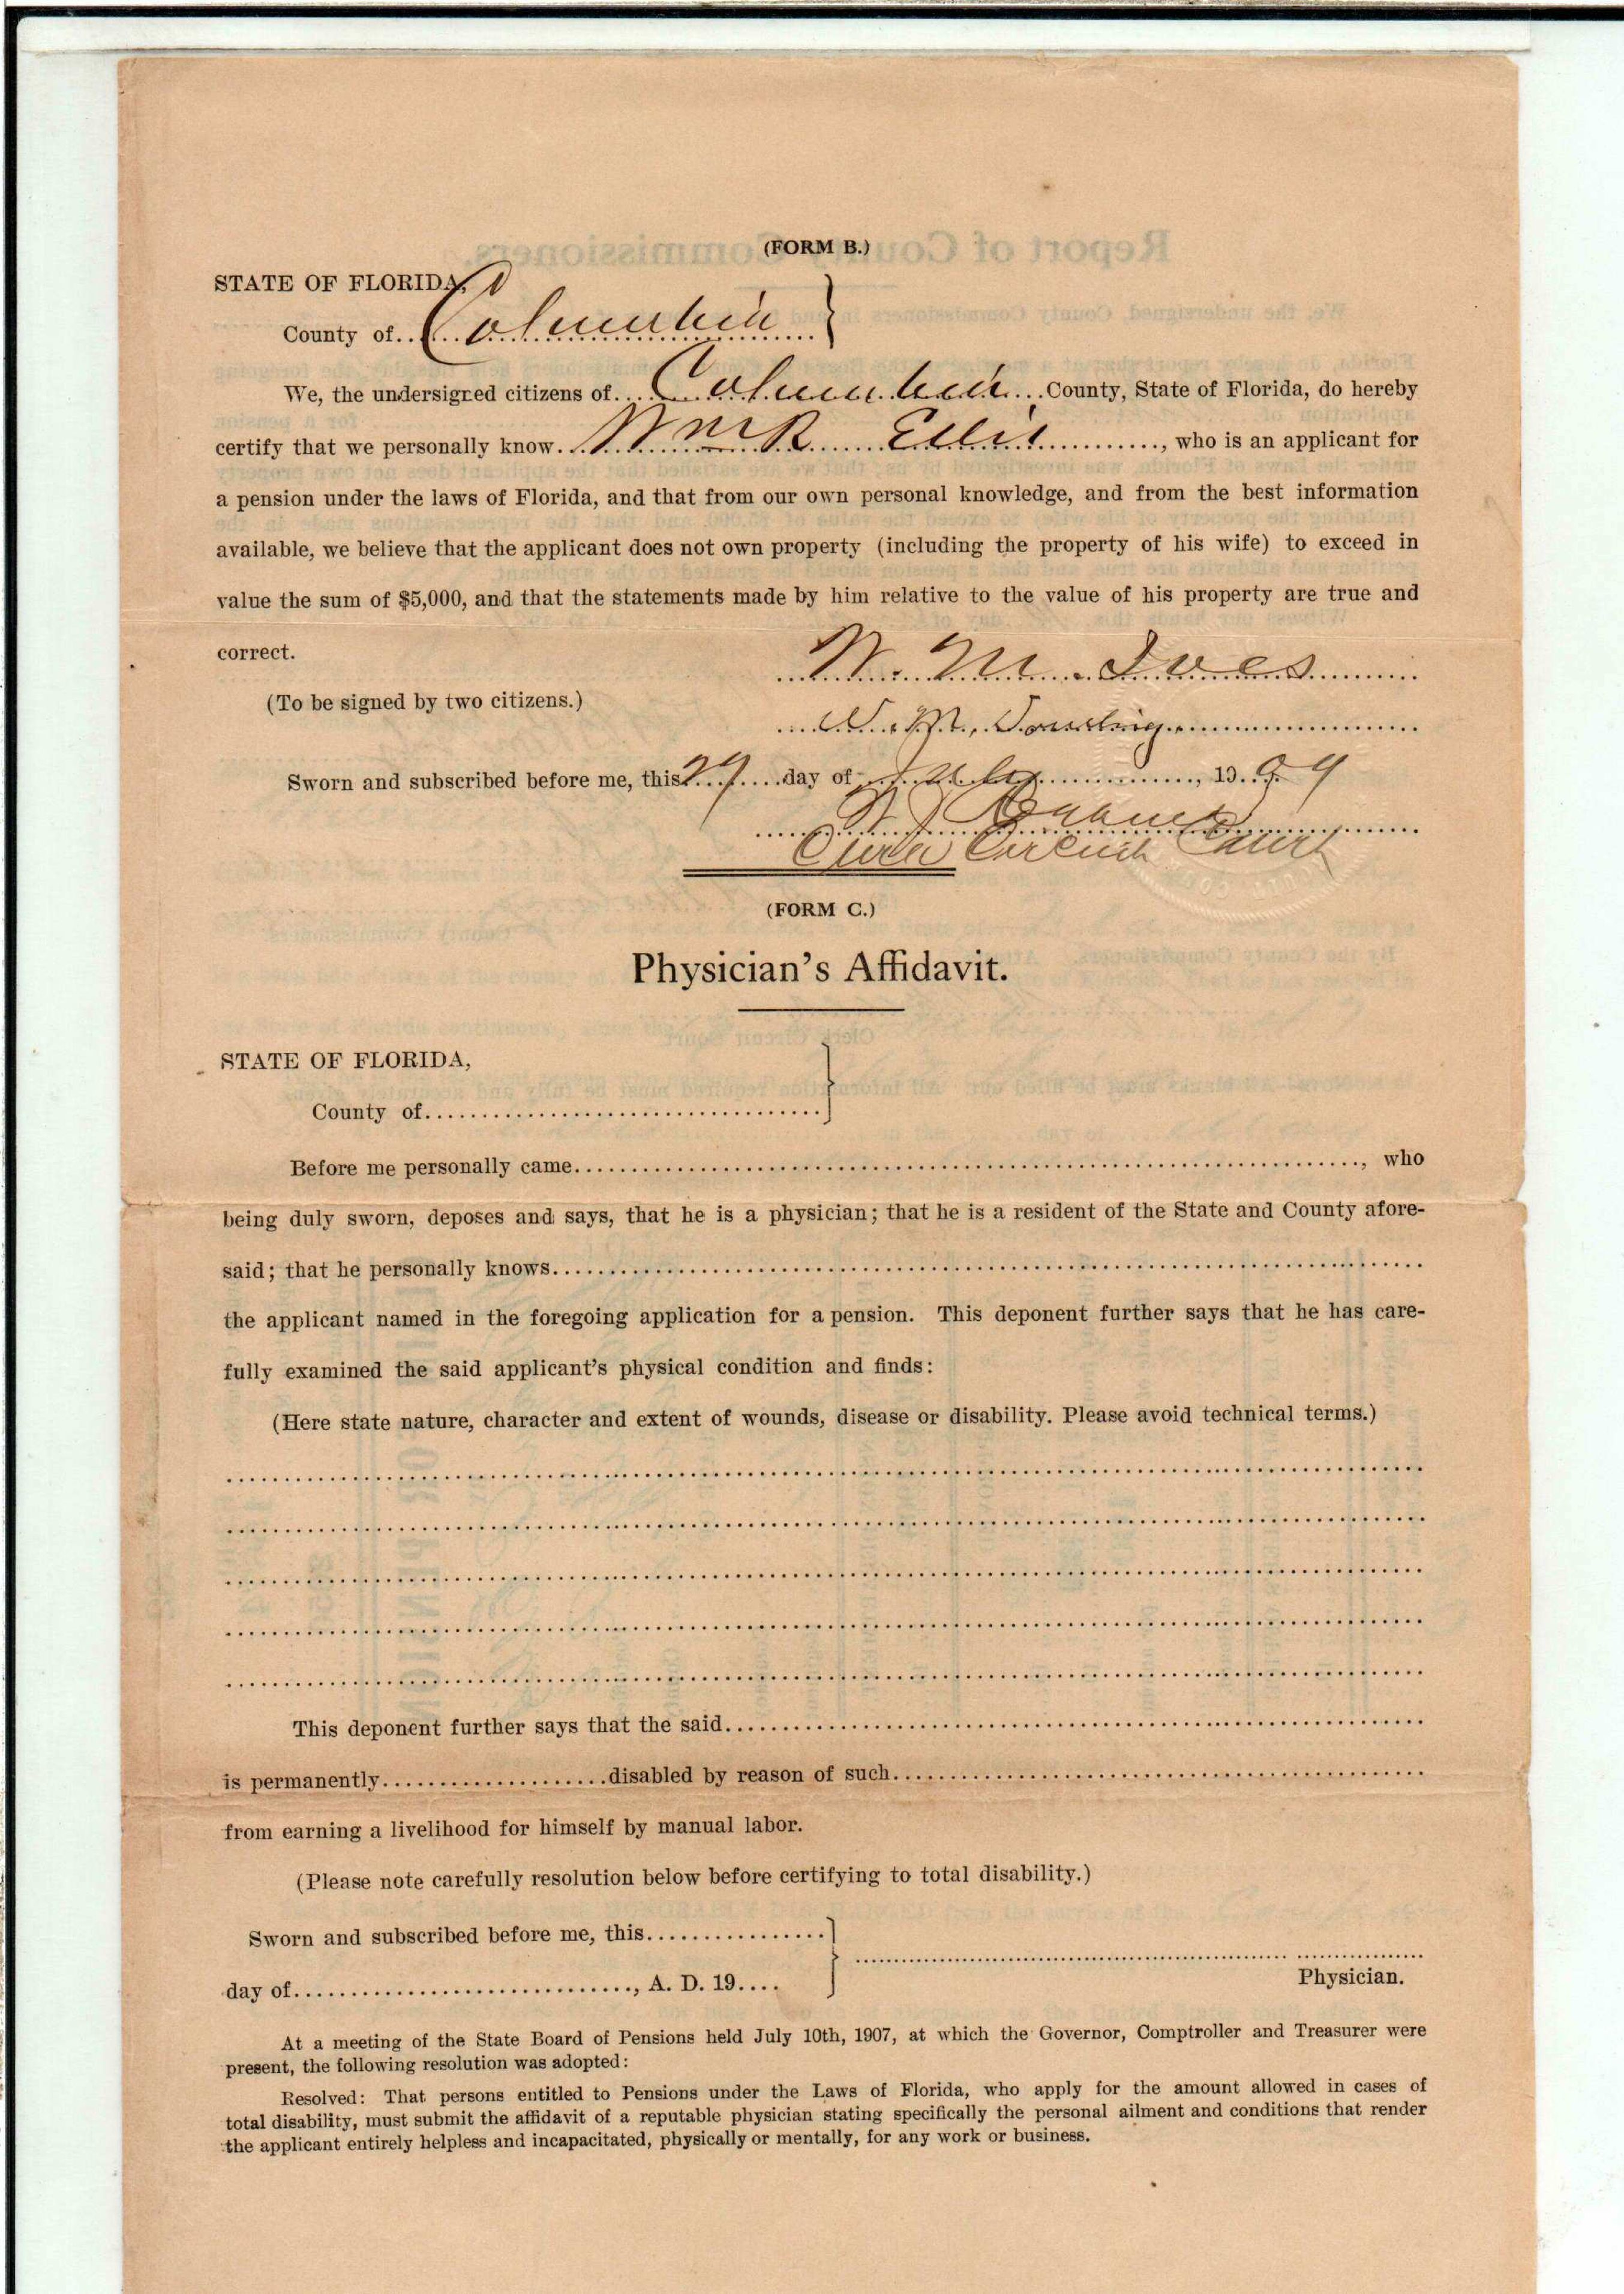 (FORM B.)
STATE OF FLORIDA,
County of Columbia
We, the undersigned citizens of Columbia County, State of Florida, do hereby
certify that we personally know Wm R Ellis, who is an applicant for
a pension under the laws of Florida, and that from our own personal knowledge, and from the best information
available, we believe that the applicant does not own property (including the property of his wife) to exceed in
value the sum of $5,000, and that the statements made by him relative to the value of his property are true and
correct.
W. M. Ives
(To be signed by two citizens.)
W. M.
Sworn and subscribed before me, this 29 day of July, 190 9
Clerk Circuit Court
(FORM C.)
Physician's Affidavit.
STATE OF FLORIDA,
County of
Before me personally came, who
being duly sworn, deposes and says, that he is a physician; that he is a resident of the State and County afore-
said; that he personally knows
the applicant named in the foregoing application for a pension. This deponent further says that he has care-
fully examined the said applicant's physical condition and finds:
(Here state nature, character and extent of wounds, disease or disability. Please avoid technical terms.)
This deponent further says that the said
is permanently disabled by reason of such
from earning a livelihood for himself by manual labor.
(Please note carefully resolution below before certifying to total disability.)
Sworn and subscribed before me, this
day of, A. D. 19
Physician.
At a meeting of the State Board of Pensions held July 10th, 1907, at which the Governor, Comptroller and Treasurer were
present, the following resolution was adopted:
Resolved: That persons entitled to Pensions under the Laws of Florida, who apply for the amount allowed in cases of
total disability, must submit the affidavit of a reputable physician stating specifically the personal ailment and conditions that render
the applicant entirely helpless and incapacitated, physically or mentally, for any work or business.